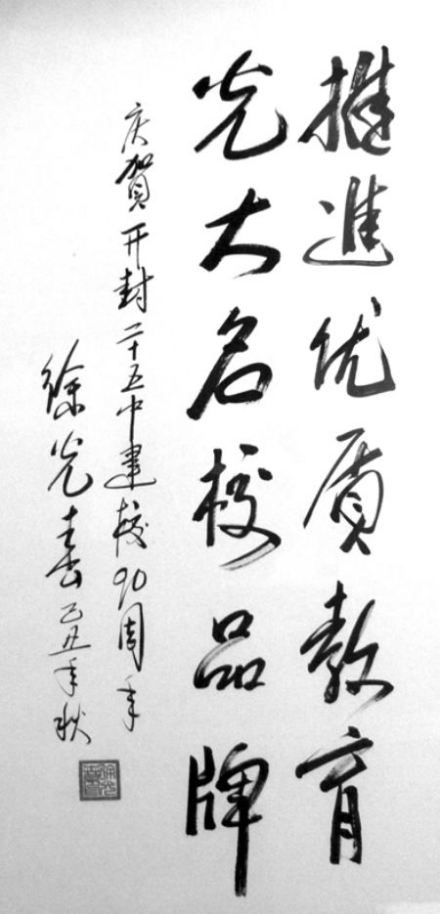 推進优质教育
光大名校品牌
庆賀开封二十五中建校90周年
徐光春 己丑年秋